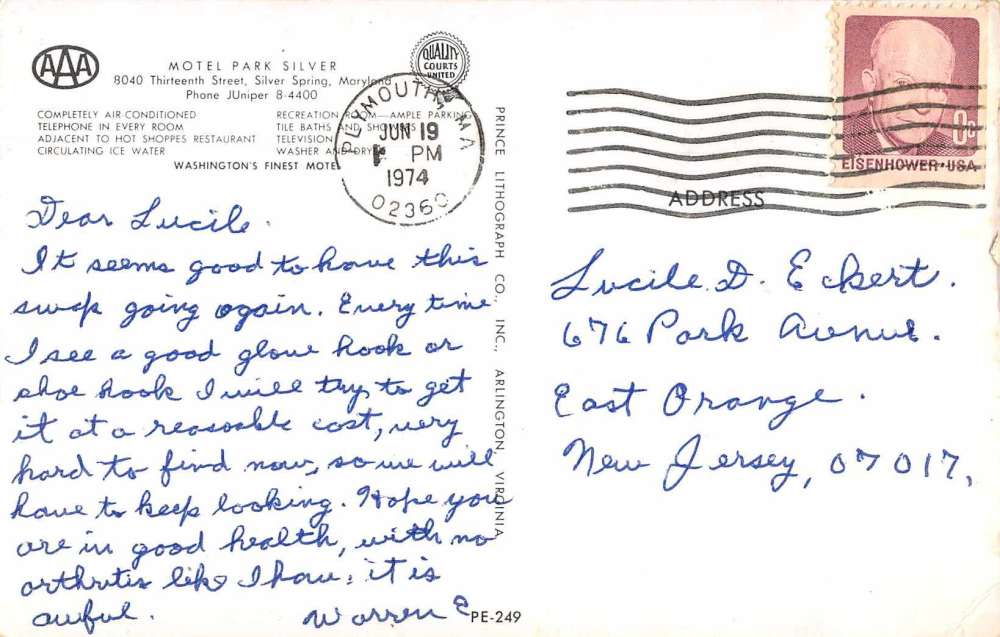 AAA
MOTEL PARK SILVER
8040 Thirteenth Street, Silver Spring, Maryland
Phone JUniper 8-4400
QUALITY
COURTS
UNITED
COMPLETELY AIR CONDITIONED
TELEPHONE IN EVERY ROOM
ADJACENT TO HOT SHOPPES RESTAURANT
CIRCULATING ICE WATER
RECREATION ROOM—AMPLE PARKING
TILE BATHS AND SHOWERS
TELEVISION
WASHER AND DRYER
WASHINGTON'S FINEST MOTEL
PLYMOUTH, MA
JUN 19
PM
1974
02360
8c
EISENHOWER·USA
ADDRESS
Dear Lucile.
It seems good to have this
swap going again. Every time
I see a good glove hook or
shoe hook I will try to get
it at a reasoable cost, very
hard to find now, so we will
have to keep looking. Hope you
are in good health, with no
arthritis like I have, it is
awful. Warren E
PRINCE LITHOGRAPH CO., INC., ARLINGTON, VIRGINIA
Lucile D. Eckert.
676 Park Avenue.
East Orange.
New Jersey, 07017,
PE-249